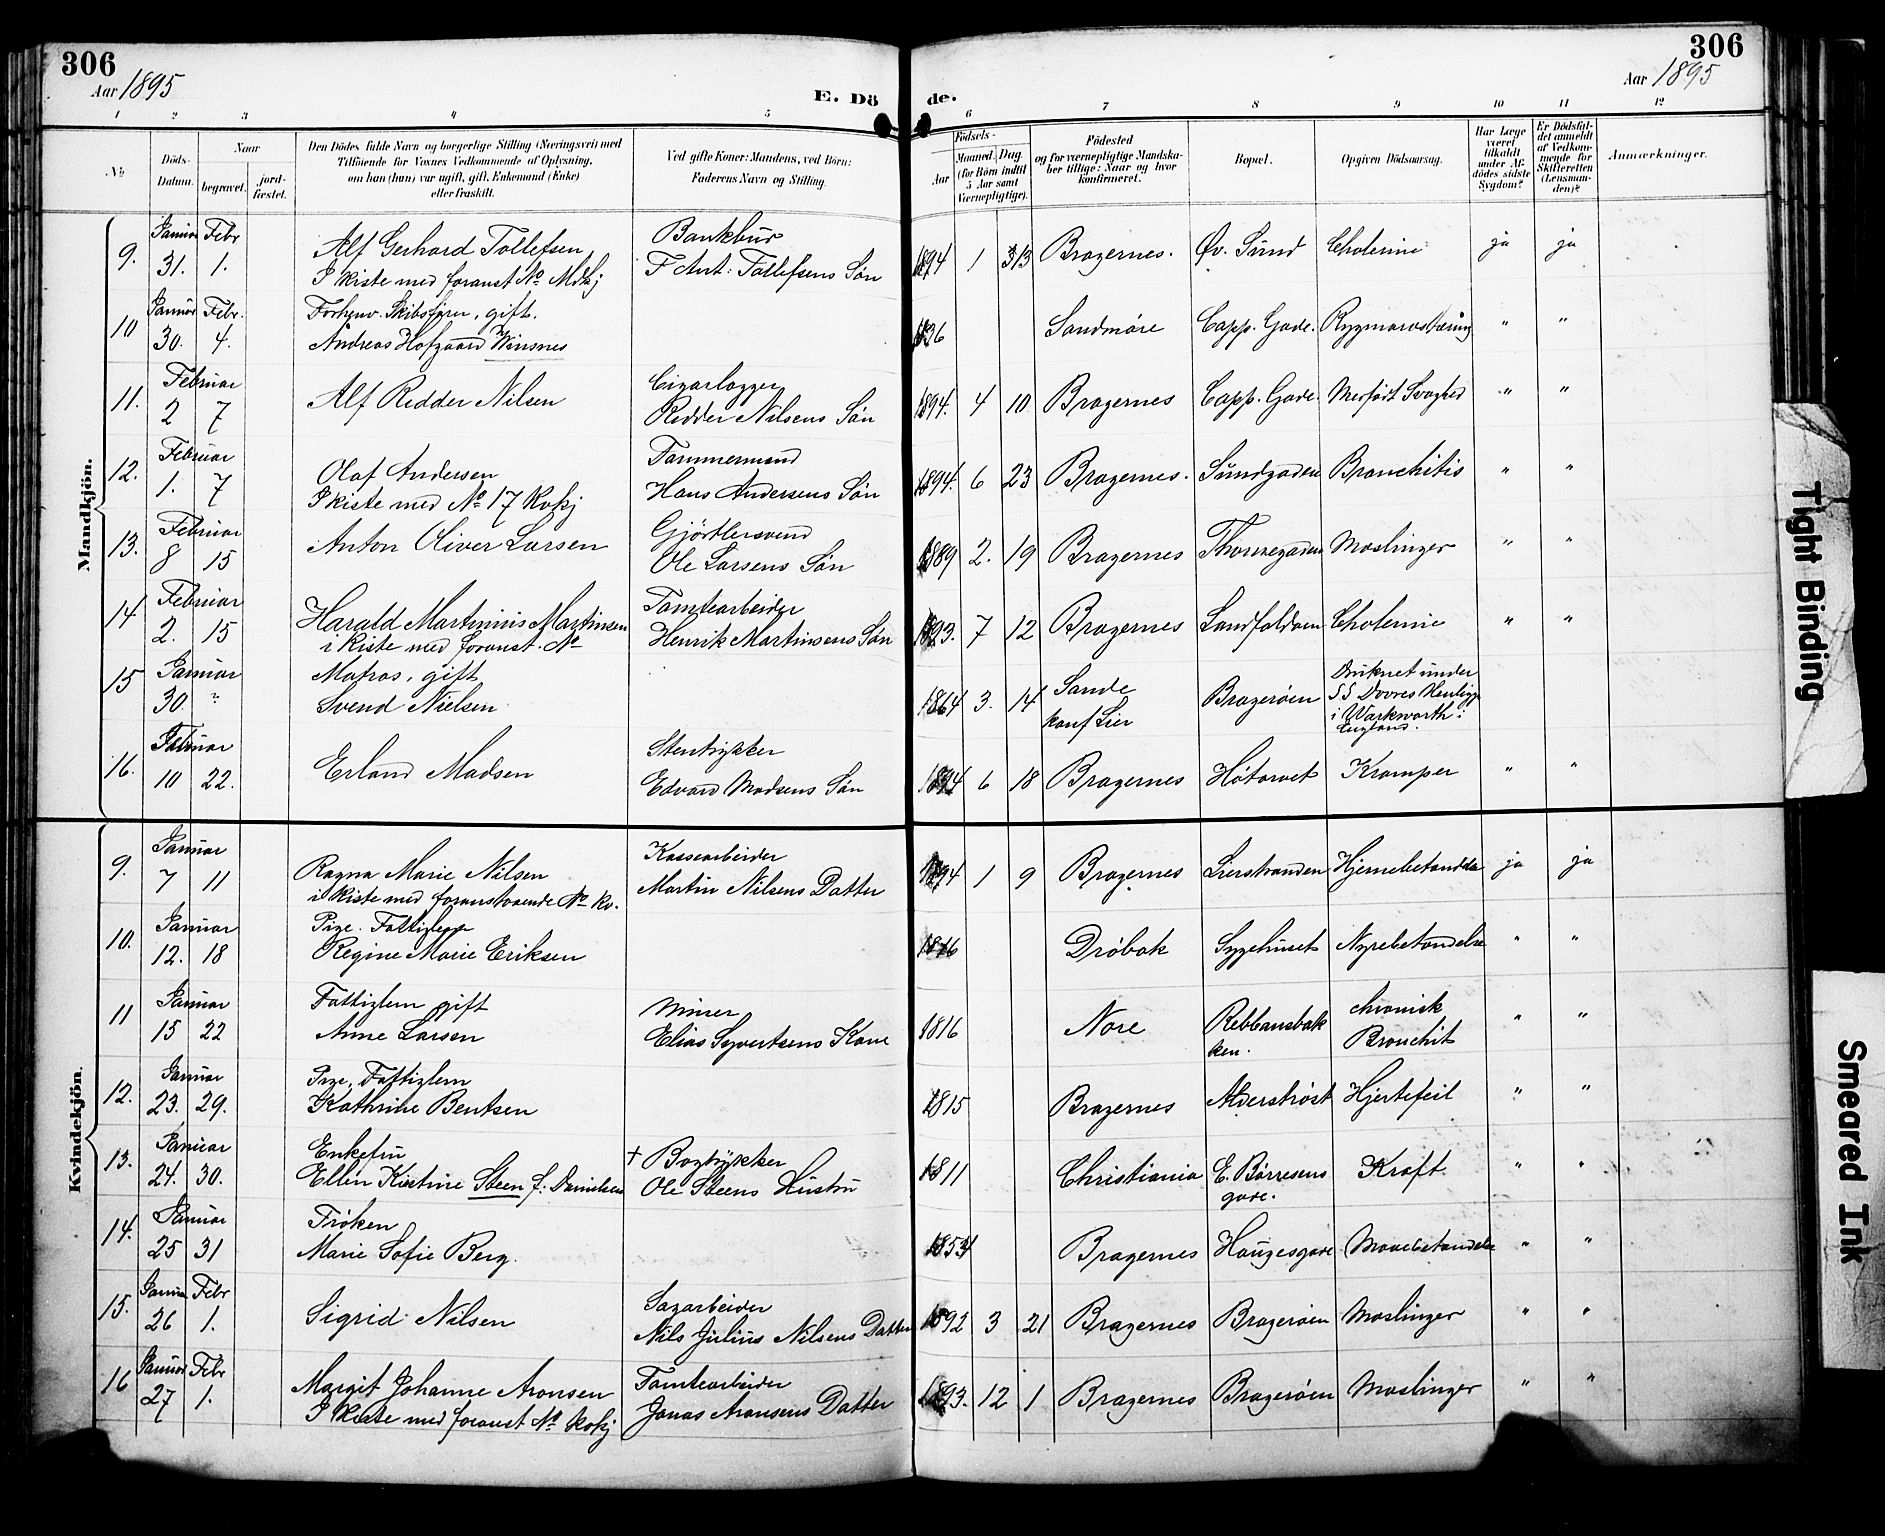 306
Aar 1895
E. Dö de.
306
Aar 1895
1 2 3 4 5 6 7 8 9 10 11 12
No.
Döds-Datum.
Naar
begravet.
jord-fæstet.
Den Dödes fulde Navn og borgerlige Stilling (Næringsvei) med
Tilföiende for Voxnes Vedkommende af Oplysning,
om han (hun) var ugift, gift, Enkemand (Enke)
eller fraskilt.
Ved gifte Koner: Mandens, ved Börn:
Faderens Navn og Stilling.
Födsels-
Aar
Maaned. Dag.
(for Börn indtil
5 Aar samt
Værnepligtige).
Födested
og for værnepligtige Mandska-
ber tillige: Naar og hvor
konfirmeret.
Bopæl.
Opgiven Dödsaarsag.
Har Læge
været
tilkaldt
under Af-
dödes sidste
Sygdom?
Er Dödsfal-
det anmeldt
af Vedkom-
mende for
Skifteretten
(Lensman-
den)?
Anmærkninger.
Mandkjön.
9. Januar 31. Febr 1. Alf Gerhard Tollefsen Bankbud 1894 1 13 Bragernes. Øv. Sund Cholerine ja ja
I kiste med foranst No Mdkj F Ant: Tollefsens Søn
10 Januar 30. Febr. 4. Forhenv. Skibsfører, gift. 1836 Sandmøre Capp. Gade. Rygmarvstæring " "
Andreas Hofgaard Winsnes
11. Februar 2 7 Alf Redder Nilsen Cigarlægger 1894. 4 10 Bragernes Capp. Gade. Medfødt Svaghed " "
Redder Nilsens Søn
12. Februar 1. 7 Olaf Andersen Tømmermand 1894. 6 23 Bragernes. Sundgaden Bronchitis " "
I kiste med No 17 Kvkj Hans Andersens Søn
13. Februar 8 15 Anton Oliver Larsen Gjørtlersvend 1889 2. 19 Bragernes Thornegaden Mæslinger " "
Ole Larsens Søn
14 Februar 2. 15 Harald Martinius Martinsen Tomtearbeider 1893. 7 12 Bragernes Landfaldøen Cholerine " "
i kiste med foranst. No Henrik Martinsens Søn
15 Januar 30. ? Matros, gift 1864 3. 14 Sande Bragerøen Druknet under
Svend Nielsen konf Lier SS Dovres Henligg
i Warkworth i
England.
16. Februar 10 22. Erland Madsen Stentrykker 1894 6 18 Bragernes Høtorvet Kramper " "
Edvard Madsens Søn
Kvindekjön.
9. Januar 7 11 Ragna Marie Nilsen Kassearbeider 1894 1 9 Bragernes Lierstranden Hjernebetændelse ja ja
i kiste med foranstaaende No Kv. Martin Nilsens Datter
10. Januar 12. 18 Pige. Fattiglem 1816 Drøbak Sygehuset Nyrebetændelse " "
Regine Marie Eriksen
11 Januar 15 22 Fattiglem gift Miner 1816 Nore Rebbansbak chronisk " "
Anne Larsen Elias Syvertsens Kone ken. Bronchit
12. Januar 23. 29. Pige, Fattiglem 1815 Bragernes Alderstrøst Hjertefeil " "
Kathrine Bentsen
13. Januar 24. 30. Enkefru † Bogtrykker 1811 Christiania E. Børresens Kræft " "
Ellen Kirstine Steen f. Danielsen Ole Steens Hustru gade.
14. Januar 25 31 Frøken 1854 Bragernes Haugesgade Mavebetændelse " "
Marie Sofie Berg.
15. Januar 26 Febr 1. Sigrid Nilsen Sagarbeider 1892 3 21 Bragernes Bragerøen Mæslinger " "
Nils Julius Nilsens Datter
16 Januar 27 Febr 1. Margit Johanne Aronsen Tomtearbeider 1893. 12 1 Bragernes Bragerøen Mæslinger " "
I kiste med foranst No Kvkj Jonas Aronsens Datter
Tight Binding
Smeared Ink